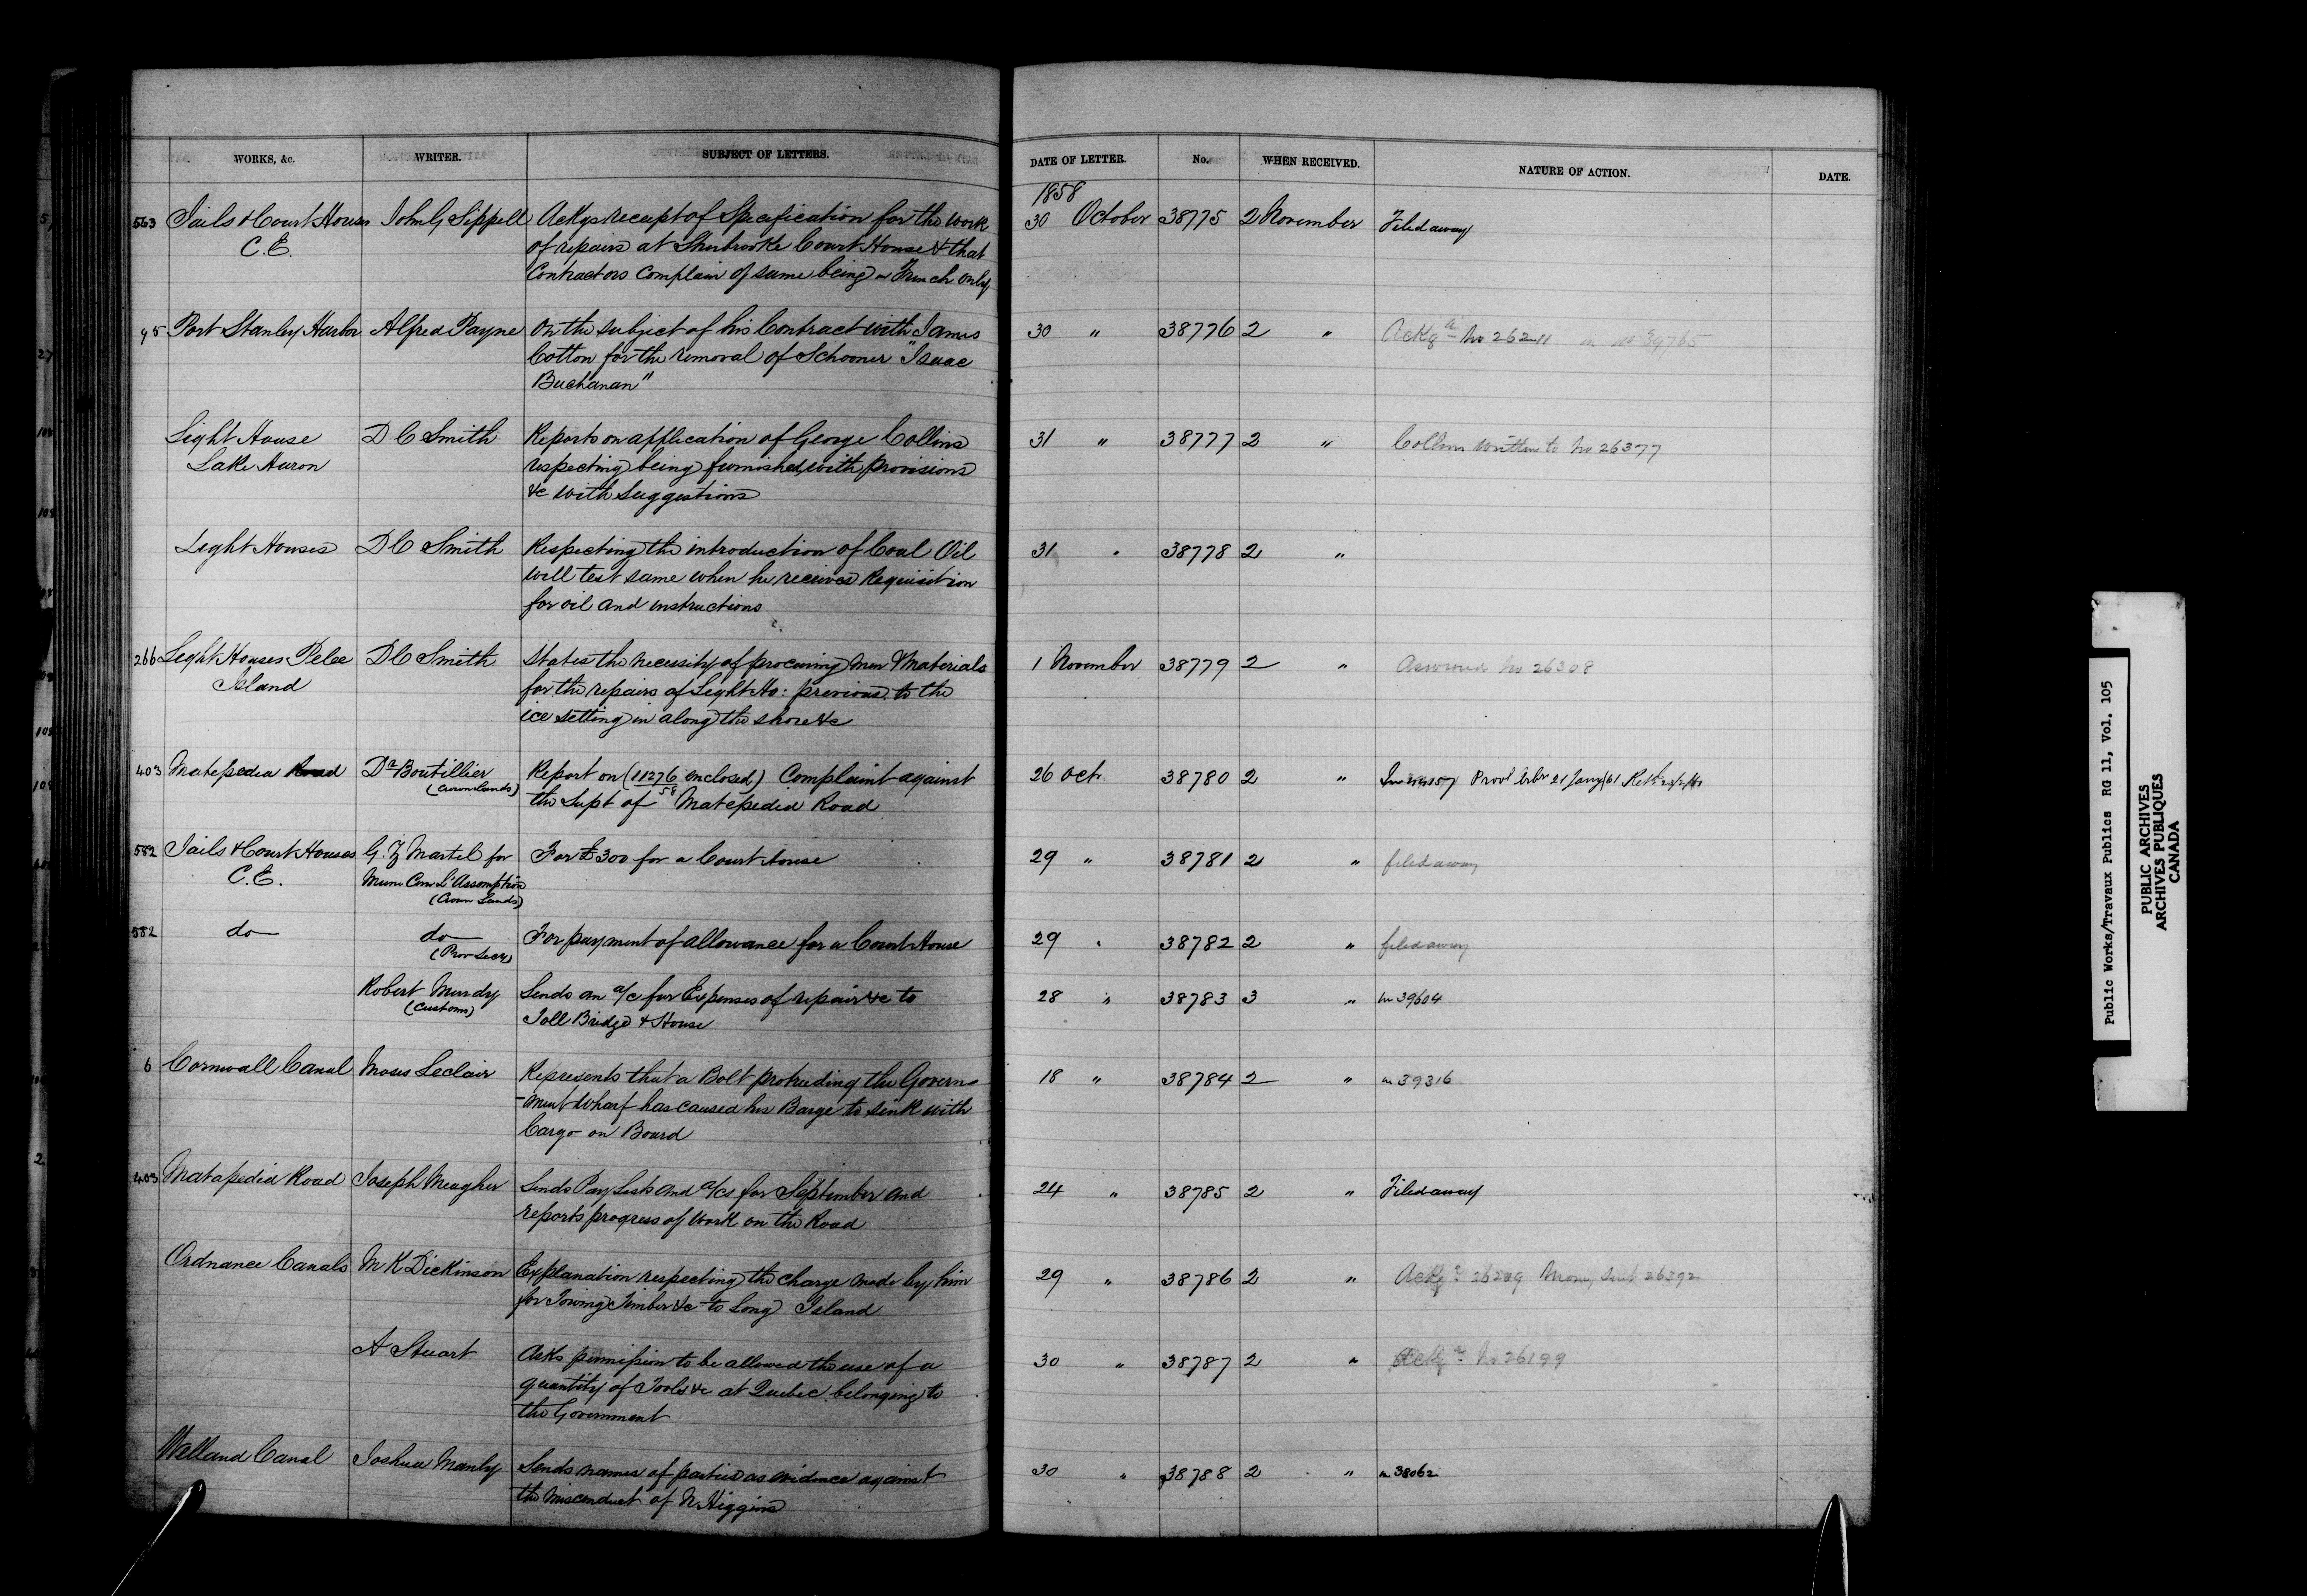 WORKS, &c. WRITER. SUBJECT OF LETTERS. DATE OF LETTER. No. WHEN RECEIVED. NATURE OF ACTION. DATE.
1858
563 Jails & Court Houses John G Sippell Ackgs receipt of Specification for the work 30 October 38775 2 November Filed away
C.E. of repairs at Sherbrooke Court House & that
Contractors complain of same being in French only
95 Port Stanley Harbor Alfred Payne On the subject of his Contract with James 30 " 38776 2 " Ackgd No 26211 in no 39765
Cotton for the removal of Schooner "Isaac
Buchanan"
Light House D C Smith Reports on application of George Collins 31 " 38777 2 " Collins written to No 26377
Lake Huron respecting being furnished with provisions
&c with suggestions
Light Houses D C Smith Respecting the introduction of Coal Oil 31 " 38778 2 "
will test same when he receives Requisition
for oil and instructions
266 Light Houses Pelee D C Smith States the necessity of procuring Men & Materials 1 November 38779 2 " Answered No 26308
Island for the repairs of Light Ho: previous to the
ice setting in along the shore &c
403 Matepedia Road Dr Boutillier Report on (11276 enclosed) Complaint against 26 Oct 38780 2 "
(Crown Lands) 58
the Supt of Matepedia Road
582 Jails & Court Houses G. Z Martel for For £300 for a Court house 29 " 38781 2 " filed away
C.E. Muni Con L'Assomption
(Crown Lands)
582 do do For payment of allowance for a Court House 29 " 38782 2 " filed away
(Prov Secy)
Robert Mundy Sends an a/c for Expenses of repair &c to 28 " 38783 3 " in 39604
(Customs) Toll Bridge & House
6 Cornwall Canal Moses Leclair Represents that a Bolt protruding the Govern- 18 " 38784 2 " in 39316
-ment Wharf has caused his Barge to sink with
Cargo on Board
403 Matapedia Road Joseph Meagher Sends Pay Lists and a/cs for September and 24 " 38785 2 " Filed away
reports progress of work on the Road
Ordnance Canals M K Dickinson Explanation respecting the charge made by him 29 " 38786 2 " Ackgd 26209 Money sent 26392
for Towing Timber &c to Long Island
A Stuart Asks permission to be allowed the use of a 30 " 38787 2 " Ackgd No 26199
quantity of Tools &c at Quebec belonging to
the Government
Welland Canal Joshua Manly Sends names of parties as evidence against 30 " 38788 2 " in 38062
the misconduct of N. Higgins
Public Works/Travaux Publics RG 11, Vol. 105
PUBLIC ARCHIVES
ARCHIVES PUBLIQUES
CANADA